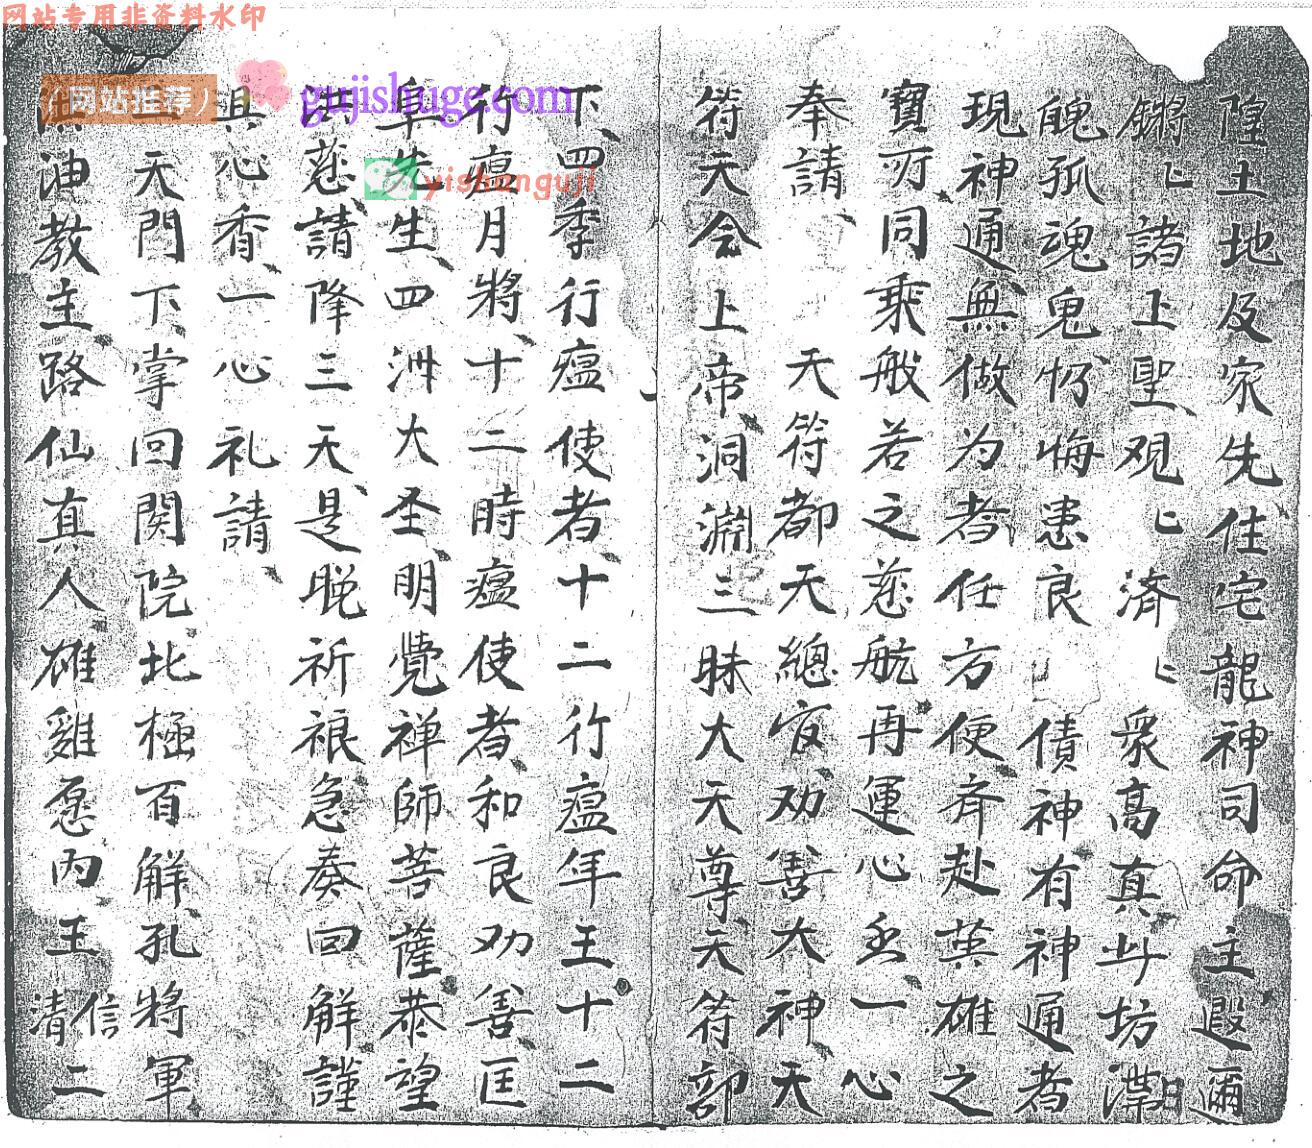 隍土地及家先住宅龍神司命主遐邇
鏘〻諸上聖观〻済〻眾高真廾坊潭
魄孤魂鬼忻悔患良債神有神通者
現神通無做为者任方便斉赴英雄之
寶可同乘般若之慈航再運心丞一心
奉請天符都天總官劝善大神天
符天令上帝洞淵三昧大天尊天符部
下四季行瘟使者十二行瘟年王十二
行瘟月將十二時瘟使者和良劝善匡
阜先生四洲大圣明覺禅師菩薩恭望
洪慈請降三天是晚祈禳急奏回解謹
具心香一心礼請
天門下掌回関院北極百解孔將軍
油教主路仙真人雄雞忩内王清信二
网站专用非资料水印
(网站推荐)
gujishuge.com
yishanguji